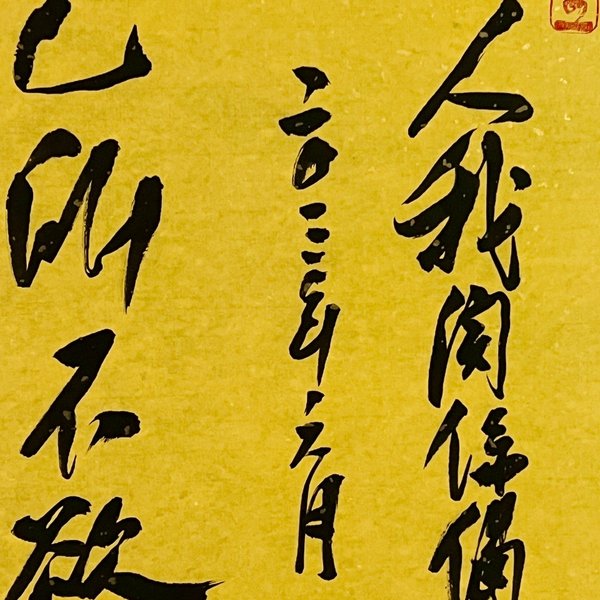 人我関係
二〇二二年六月
己所不欲